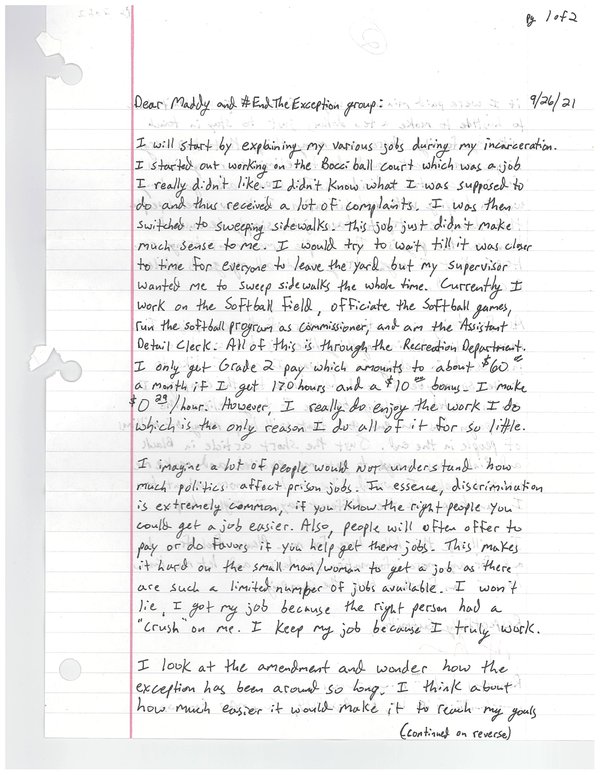 Pg 1 of 2
Dear Maddy and #EndTheException group: 9/26/21
I will start by explaining my various jobs during my incarceration.
I started out working on the Bocci ball court which was a job
I really didn't like. I didn't know what I was supposed to
do and thus received a lot of complaints. I was then
switched to sweeping sidewalks. This job just didn't make
much sense to me. I would try to wait till it was closer
to time for everyone to leave the yard but my supervisor
wanted me to sweep sidewalks the whole time. Currently I
work on the Softball Field, officiate the Softball games,
run the softball program as commissioner, and am the Assistant
Detail Clerk. All of this is through the Recreation Department.
I only get Grade 2 pay which amounts to about $60
a month if I get 170 hours and a $10 bonus. I make
$0.29/hour. However, I really do enjoy the work I do
which is the only reason I do all of it for so little.
I imagine a lot of people would not understand how
much politics affect prison jobs. In essence, discrimination
is extremely common, if you know the right people you
could get a job easier. Also, people will often offer to
pay or do favors if you help get them jobs. This makes
it hard on the small man/woman to get a job as there
are such a limited number of jobs available. I won't
lie, I got my job because the right person had a
"crush" on me. I keep my job because I truly work.
I look at the amendment and wonder how the
exception has been around so long. I think about
how much easier it would make it to reach my goals
(continued on reverse)